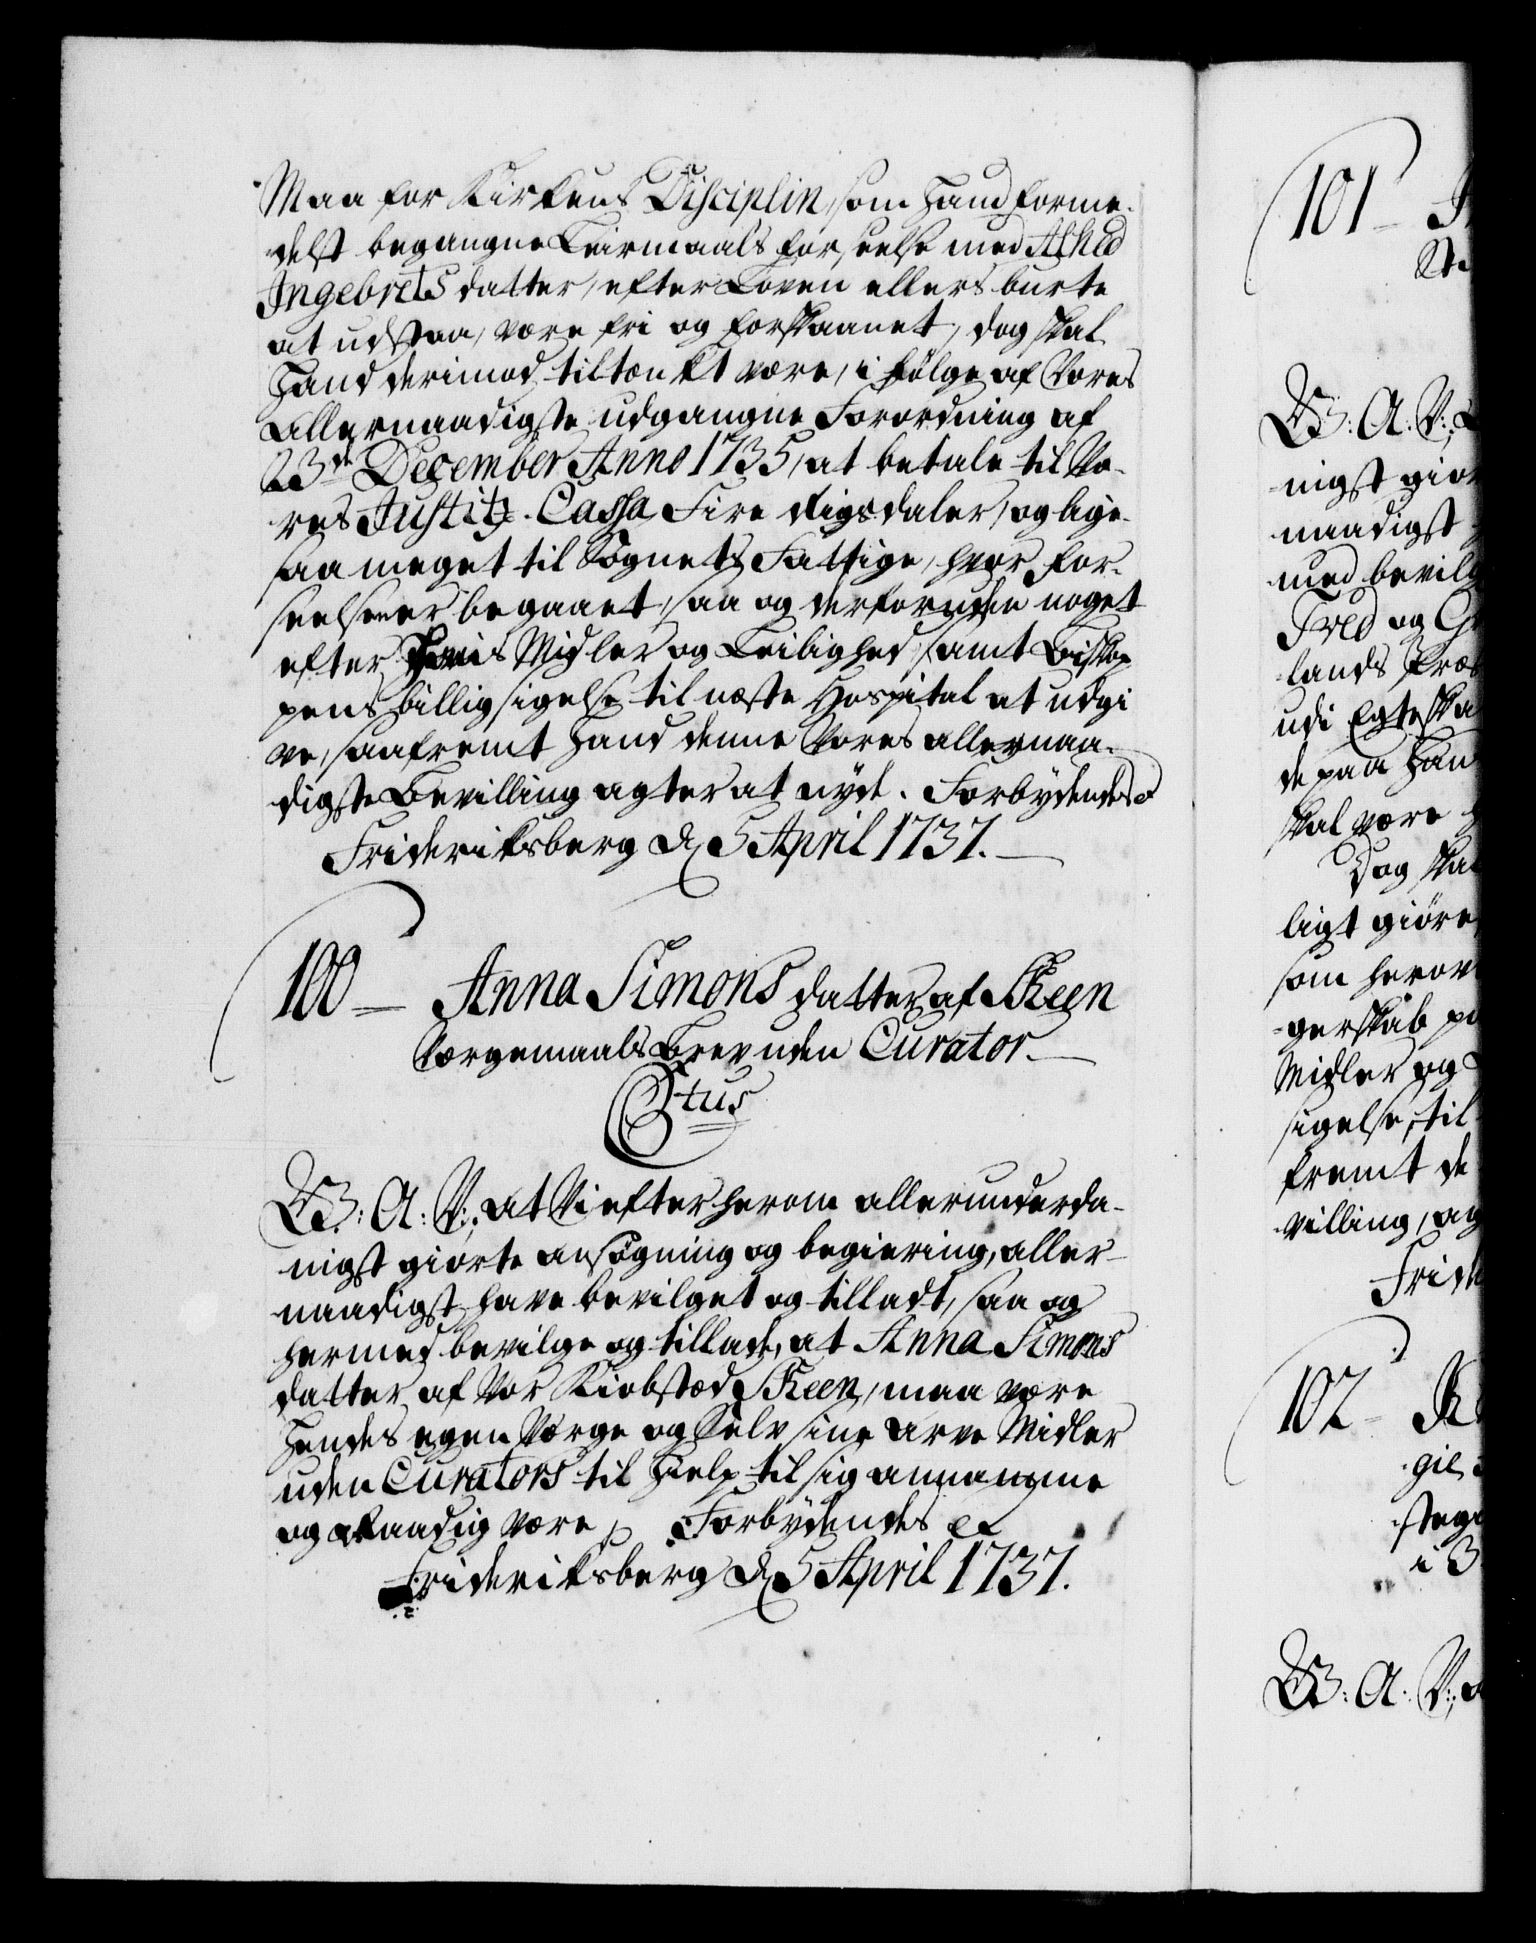 Maa for Kirkens Disciplin, som Hand forme-
delst begangne Leiermaals forseelse med Alhed
Ingebrets datter, efter Loven ellers burte
at udstaa, være fri og forskaanet, dog skal
Hand derimod tiltænkt være, i følge af Vores
Allernaadigste udgangne Forordning af
23de December Anno 1735, at betale til Vo-
res Justitz-Cassa Fire Rigsdaler, og lige-
saa meget til Sognets Fattige, hvor for-
seelsen er begaaet, saa og derforuden noget
efter Hans Midler og Leilighed, samt Biskop
pens billig sigelse til næste Hospital at udgi
ve, saafremt Hand denne Vores allernaa-
digste Bevilling agter at nyde. Forbydendes
Frideriksberg d. 5 April 1737.
100 Anna Simons datter af Skeen
Værgemaals Brev uden Curator.
Ctus
W: A: V:, at Vi efter herom allerunderda-
nigst giorte ansøgning og begiering, aller-
naadigst have bevilget og tilladt, saa og
hermed bevilge og tillade, at Anna Simons
datter af Vor Kiøbstæd Skeen, maa være
Hendes egen Værge og Selv sine Arve Midler
uden Curators til Hielp til sig annamme
og raadig være p Forbydendes etc
Frideriksberg d. 5 April 1737.
101
W: A: V:,
nigst gior
naadigst
med bevilg
Fred og
lands Præs
udi Egteska
de paa Han
skal være
Dog skal
ligt giøre
som herov
gerskab pa
Midler og
sigelse, til
fremt de
villing, ag
Fride
102
gie
steg
i 3
W: A: V:, a